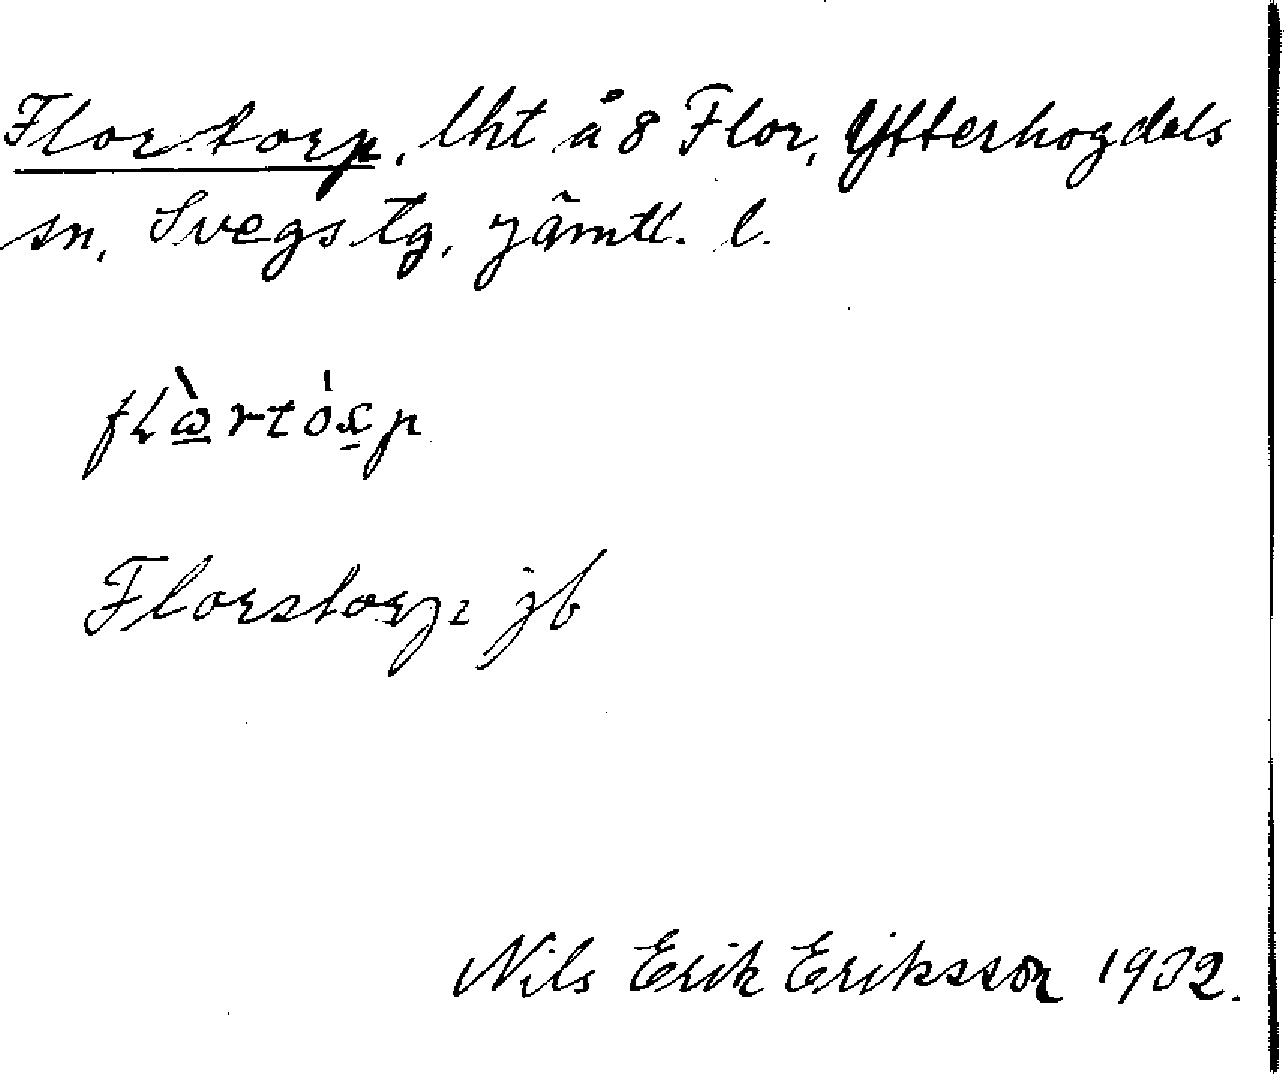 Flortorp, lht å 8 Flor, Ytterhogdals
sn, Svegs tg, Jämtl. l.
Florstorp jb
Nils Erik Eriksson 1932.